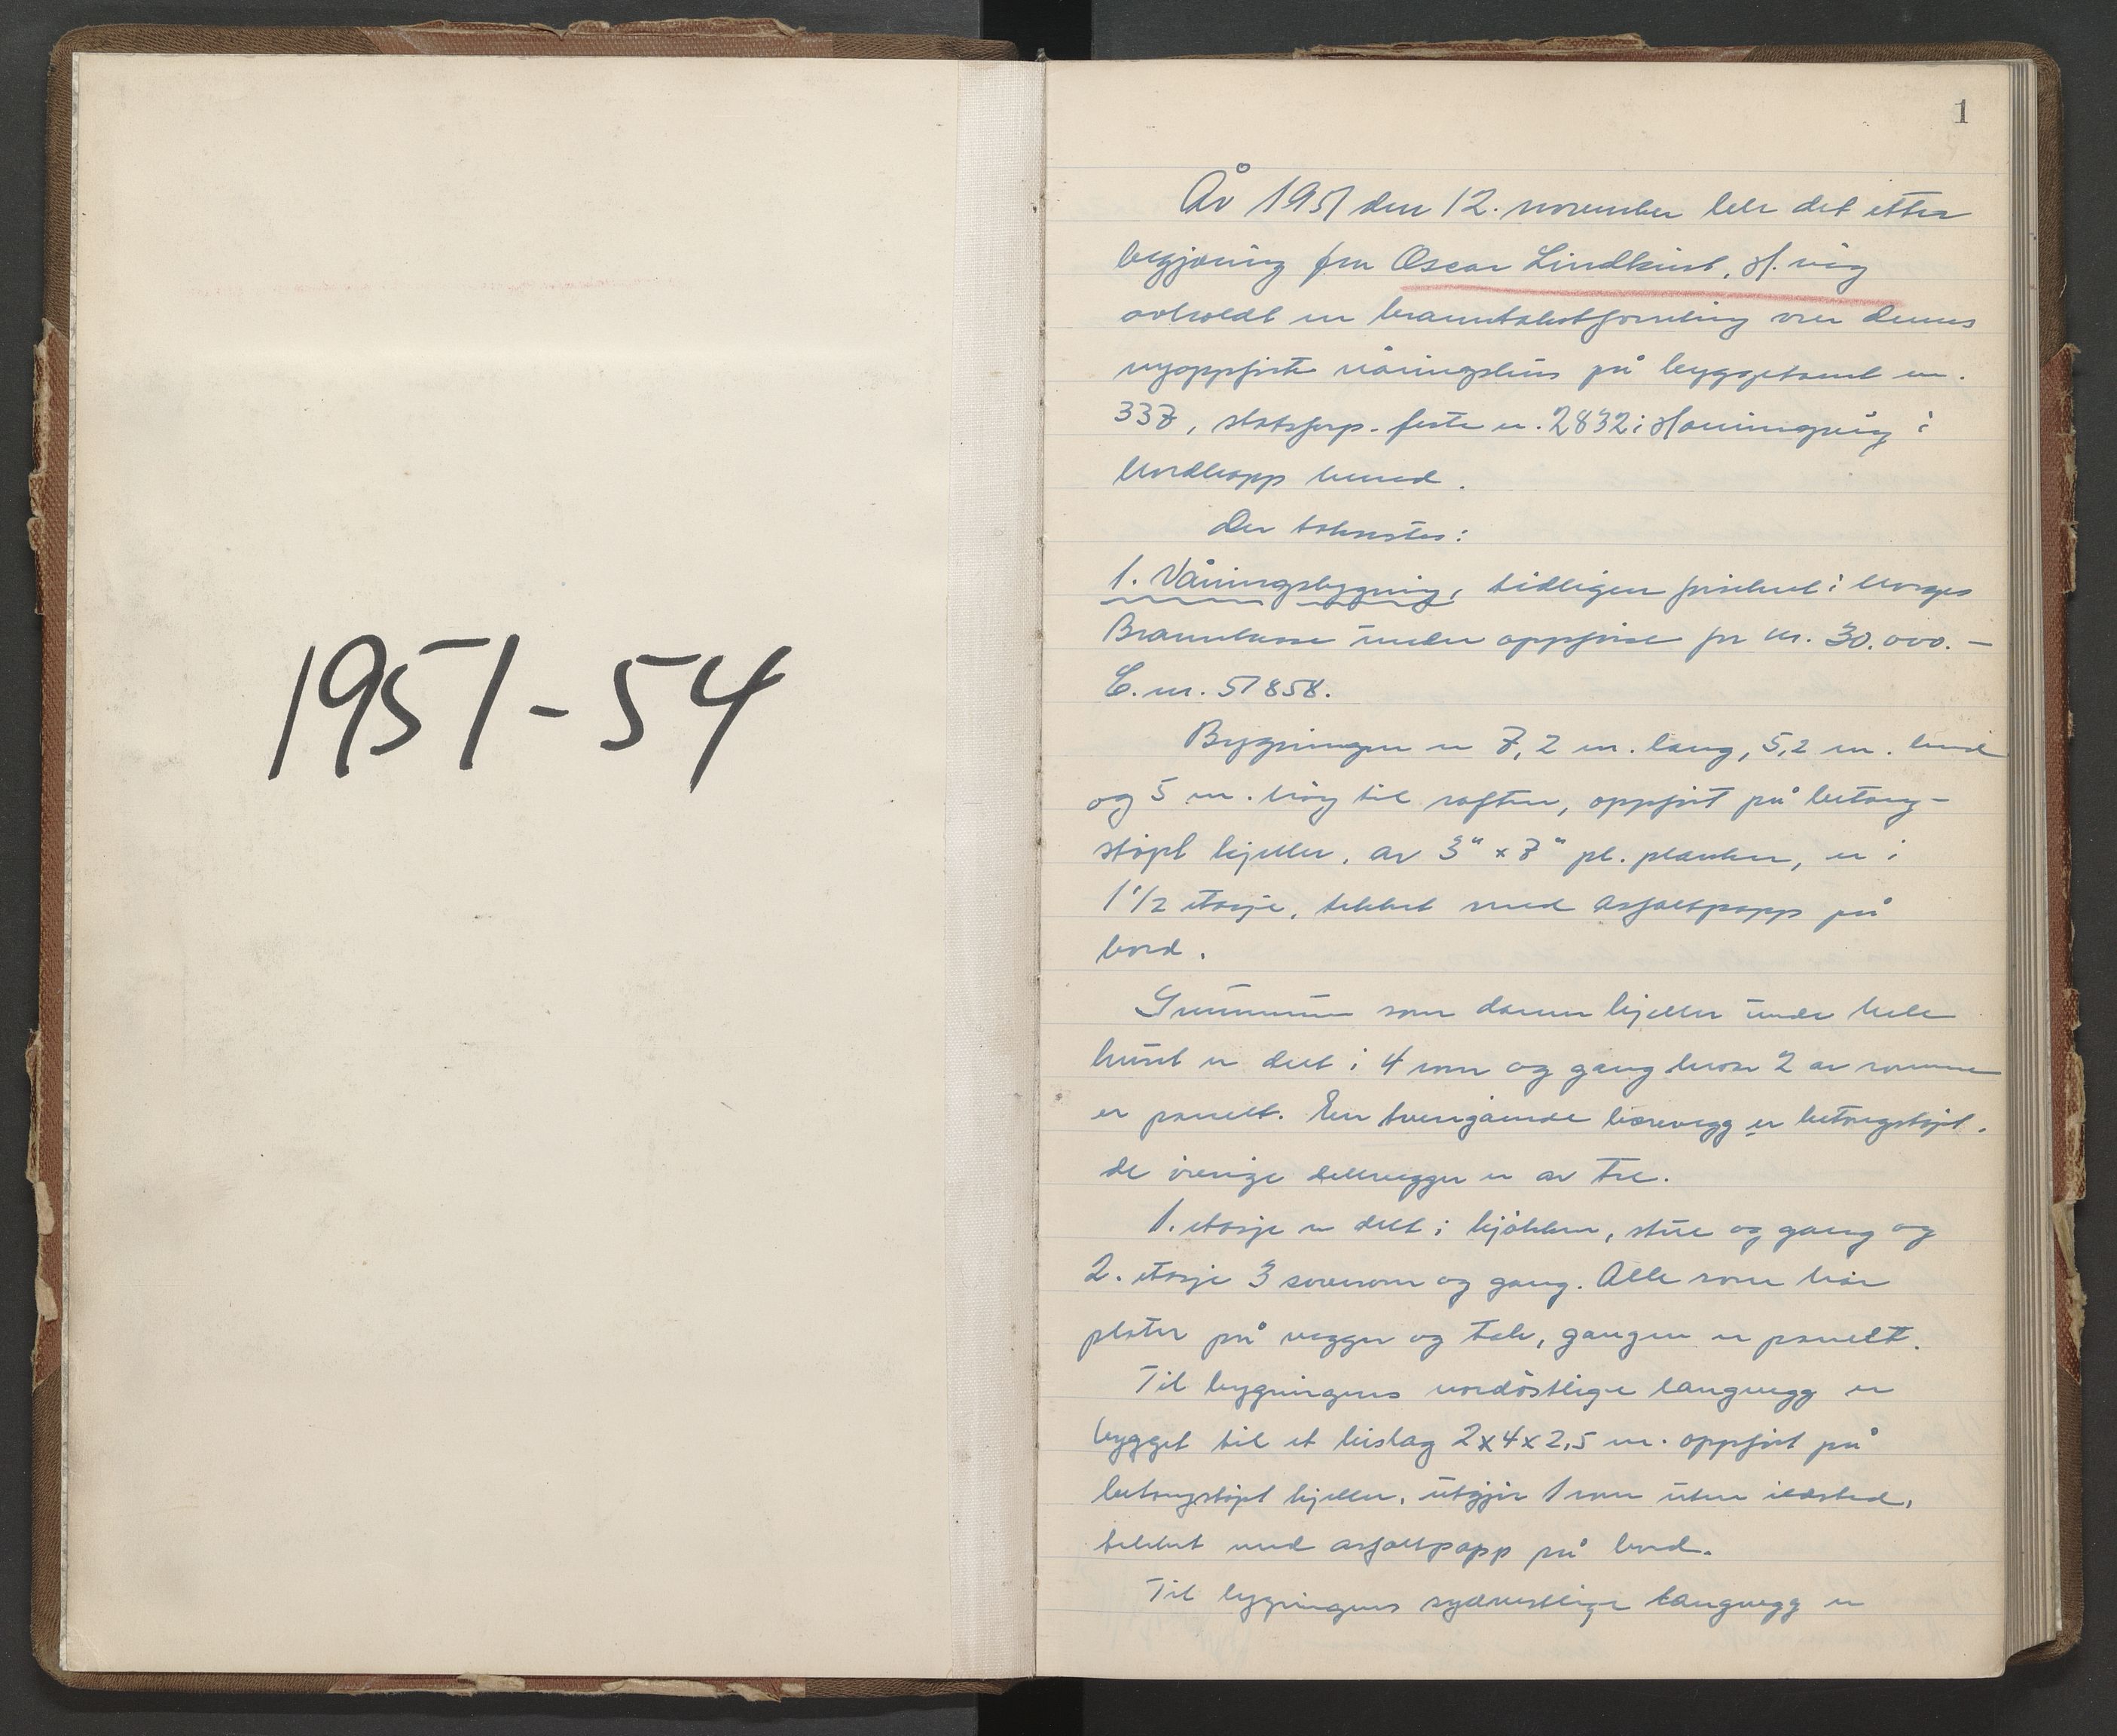 1951-54
1
År 1951 den 12. november ble det etter
begjæring fra Oscar Lindkvist, H.våg
avholdt en branntakstforretning over dennes
nyoppførte våningshus på byggetomt nr.
337, statsfisp. feste nr. 2832 i Honningsvåg i
Nordkapp herred.
Der taksertes:
1. Våningsbygning, tidligere forsikret i Norges
Brannkasse under oppførelse for kr. 30.000.-
C. nr. 51858.
Bygningen er 7,2 m. lang, 5,2 m. bred
og 5 m. høy til raften, oppført på betong-
støpt kjeller, av 3" x 7" pl. planker, er i
1 1/2 etasje, tekket med asfaltpapp på
bord.
Grunnmuren som danner kjeller under hele
huset er delt i 4 rom og gang hvorav 2 av rommene
er panelt. En tverrgående bærevegg er betongstøpt,
de øvrige delevegger er av tre.
1. etasje er delt i kjøkken, stue og gang og
2. etasje 3 soverom og gang. Alle rom har
plater på vegger og tak, gangen er panelt.
Til bygningens nordøstlige langvegg er
bygget til et bislag 2x4x2,5 m. oppført på
betongstøpt kjeller, utgjør 1 rom uten ildsted,
tekket med asfaltpapp på bord.
Til bygningens sydvestlige langvegg er